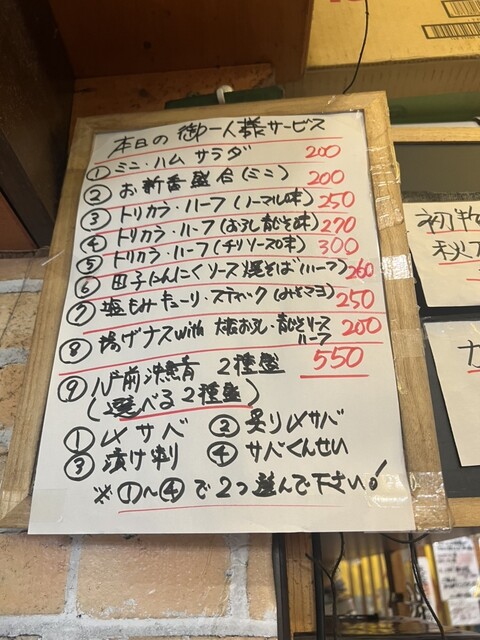 本日の御一人様サービス
① ミニ・ハム サラダ 200
② お新香盛合(ミニ) 200
③ トリカラ・ハーフ(ノーマル味) 250
④ トリカラ・ハーフ(おろし青じそ味) 270
⑤ トリカラ・ハーフ(チリソース味) 300
⑥ 田子にんにくソース焼そば(ハーフ) 260
⑦ 塩もみキューリ・スティック(みそマヨ) 250
⑧ 揚げナスwith 大根おろし・青じそソース ハーフ 200
⑨ 八戸前沖無有 2種盛 550
(選べる2種盛)
① 〆サバ ③ 炙り〆サバ
③ 漬け刺 ④ サバくんせい
※①〜④で2つ選んで下さい!
初
秋
カ